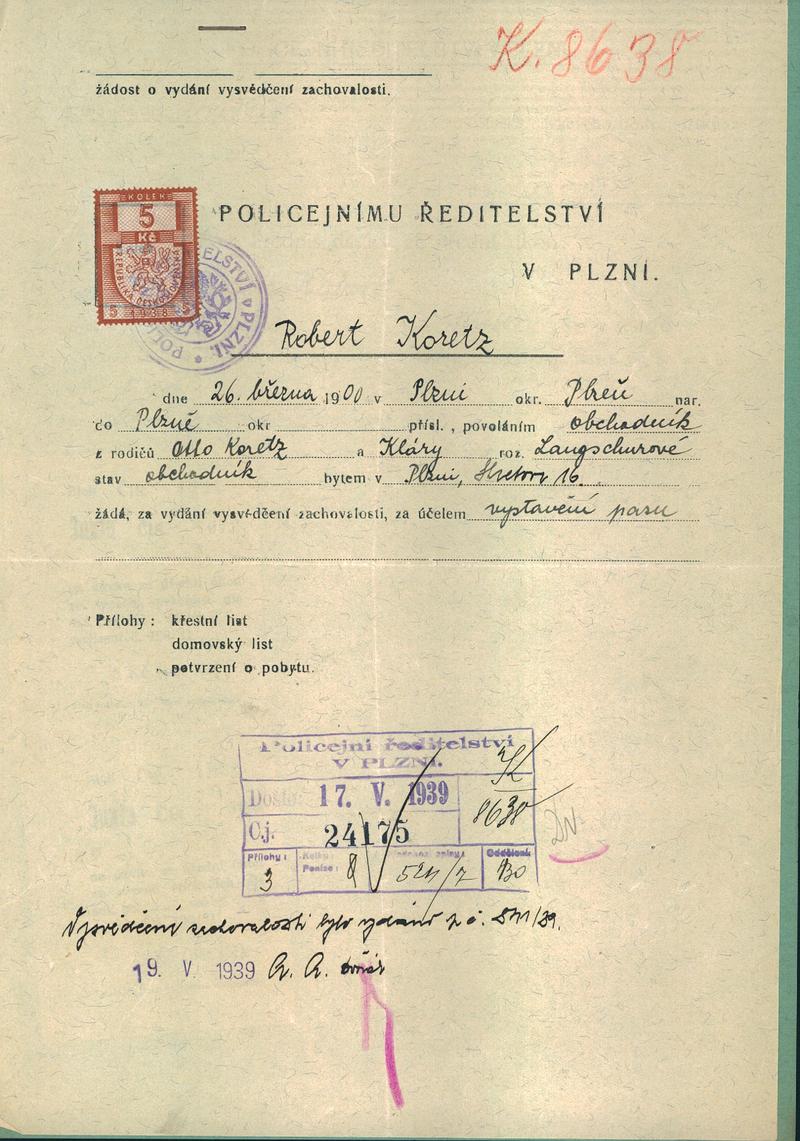 K. 8638
žádost o vydání vysvědčení zachovalosti.
KOLEK
5
Kč
REPUBLIKA ČESKOSLOVENSKÁ
5 1938 5
POLICEJNÍMU ŘEDITELSTVÍ
V PLZNI.
Robert Koretz
dne 26. března 1900 v Plzni okr. Plzeň nar.
do Plzně okr přísl., povoláním obchodník
z rodičů Otto Koretz a Kláry roz. Langschurové
stav obchodník bytem v Plzni, 16
žádá, za vydání vysvědčení zachovalosti, za účelem vystavění pasu
Přílohy: křestní list
domovský list
potvrzení o pobytu.
Policejní ředitelství
V PLZNI.
Došlo: 17. V. 1939
K
8638
Č.j. 24175
Přílohy: 3
Kolky
Peníze: 8
Oddělení:
Vysvědčení zachovalosti bylo vydáno
19. V. 1939